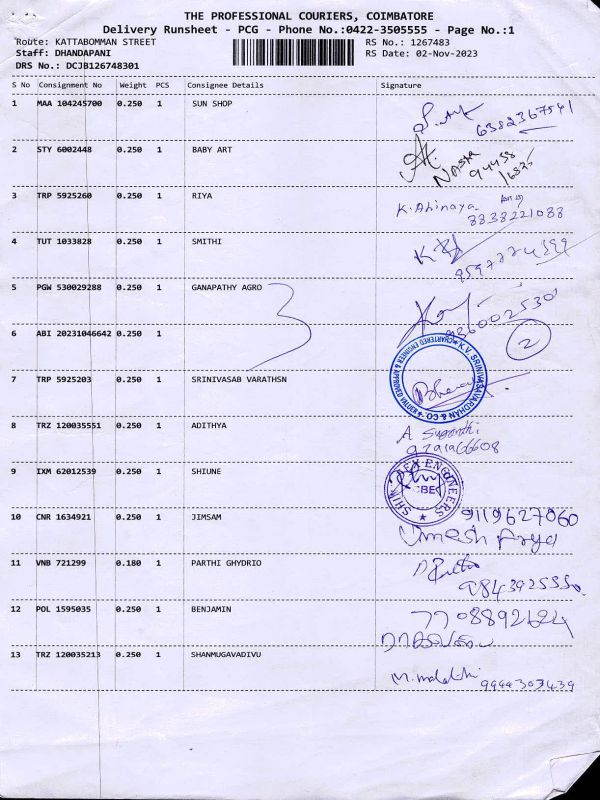 THE PROFESSIONAL COURIERS, COIMBATORE
Delivery Runsheet - PCG - Phone No.:0422-3505555 - Page No.:1
Route: KATTABOMMAN STREET RS No.: 1267483
Staff: DHANDAPANI RS Date: 02-Nov-2023
DRS No.: DCJB126748301
S No Consignment No Weight PCS Consignee Details Signature
1 MAA 104245700 0.250 1 SUN SHOP
6382367541
2 STY 6002448 0.250 1 BABY ART
94438
3 TRP 5925260 0.250 1 RIYA
K. Abinaya
8838221088
4 TUT 1033828 0.250 1 SMITHI
5 PGW 530029288 0.250 1 GANAPATHY AGRO
6 ABI 20231046642 0.250 1
2
K.V. SRINIVASAVARDHAN & CO
CHARTERED ENGINEER & APPROVED VALUER
7 TRP 5925203 0.250 1 SRINIVASAB VARATHSN
8 TRZ 120035551 0.250 1 ADITHYA
A Suganthi
9 IXM 62012539 0.250 1 SHIUNE
ENGINEERS
CBE
10 CNR 1634921 0.250 1 JIMSAM
9119627060
Umesh Arya
11 VNB 721299 0.180 1 PARTHI GHYDRIO
12 POL 1595035 0.250 1 BENJAMIN
7708892624
13 TRZ 120035213 0.250 1 SHANMUGAVADIVU
M. malathi 9994303439